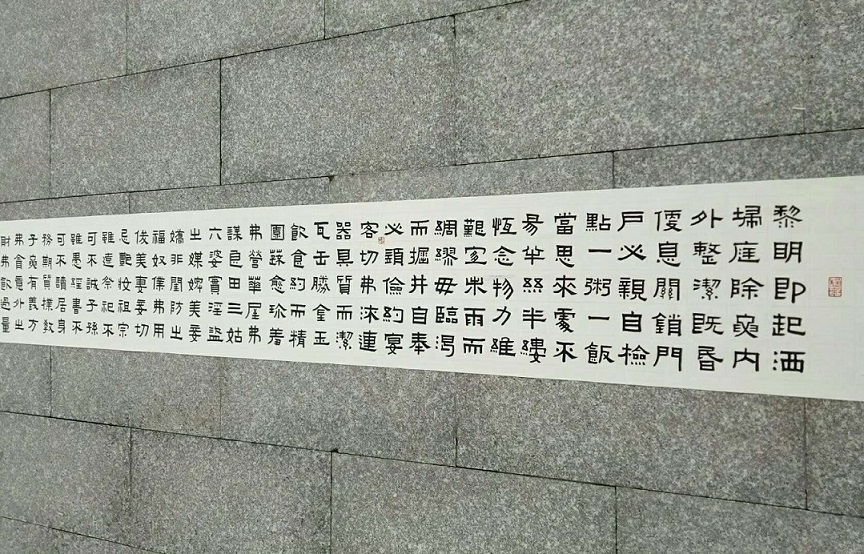 黎明即起洒
埽庭除要内
外整潔既昏
便息關鎖門
户必親自檢
點一粥一飯
當思來處不
易半絲半縷
恆念物力維
艱宜未雨而
綢繆毋臨渴
而掘井自奉
必須儉約宴
客切弗流連
器具質而潔
瓦缶勝金玉
飲食約而精
園蔬愈珍羞
弗營華屋弗
謀良田三姑
六婆實淫盜
之媒婢美妾
嬌非閨房之
福奴僕弗用
俊美妻妾切
忌艷妝祖宗
雖遠祭祀不
可不誠子孫
雖愚經書不
可不讀居身
務期質樸教
子要有義方
弗貪意外之
財弗飲過量